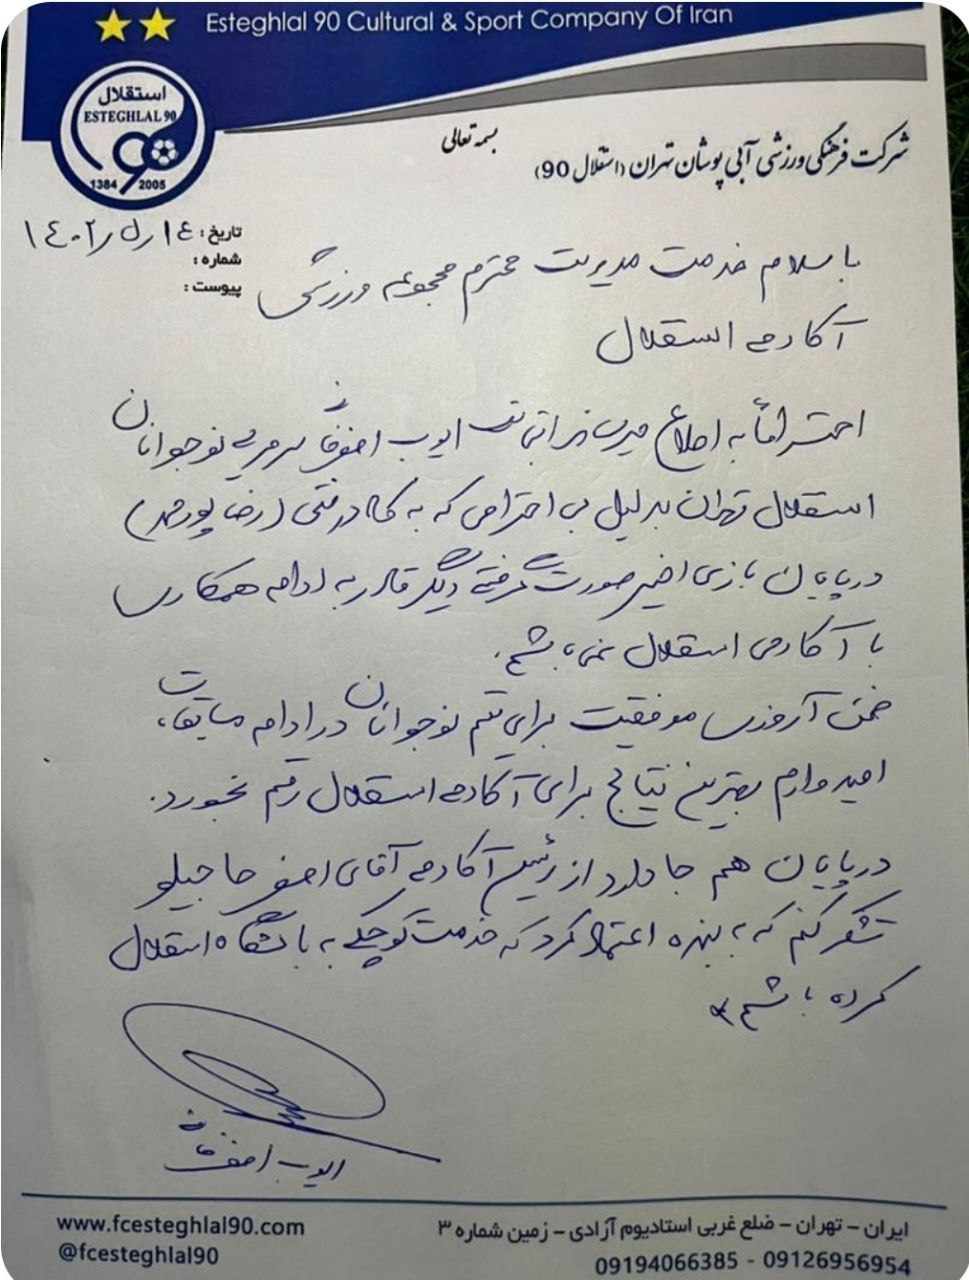 Esteghlal 90 Cultural & Sport Company Of Iran
استقلال
ESTEGHLAL 90
90
1384 2005
بسمه تعالی
شرکت فرهنگی ورزشی آبی پوشان تهران (استقلال 90)
تاریخ :
شماره :
پیوست :
با سلام خدمت مدیریت محترم مجموعه ورزشی
آکادمی استقلال
احتراماً به اطلاع میرساند اینجانب ایوب اصغرخانی سرمربی نوجوانان
استقلال تهران بدلیل بی احترامی که به کادر فنی (رضا پورمحمد)
در پایان بازی اخیر صورت گرفته دیگر قادر به ادامه همکاری
با آکادمی استقلال نمی باشم.
ضمن آرزوی موفقیت برای تیم نوجوانان در ادامه مسابقات،
امیدوارم بهترین نتایج برای آکادمی استقلال رقم بخورد.
در پایان هم جا دارد از رئیس آکادمی آقای اصغر حاجیلو
تشکر کنم که به بنده اعتماد کرد که خدمت کوچکی به باشگاه استقلال
کرده باشم
ایوب
www.fcesteghlal90.com
@fcesteghlal90
ایران – تهران – ضلع غربی استادیوم آزادی – زمین شماره ۳
09194066385 - 09126956954